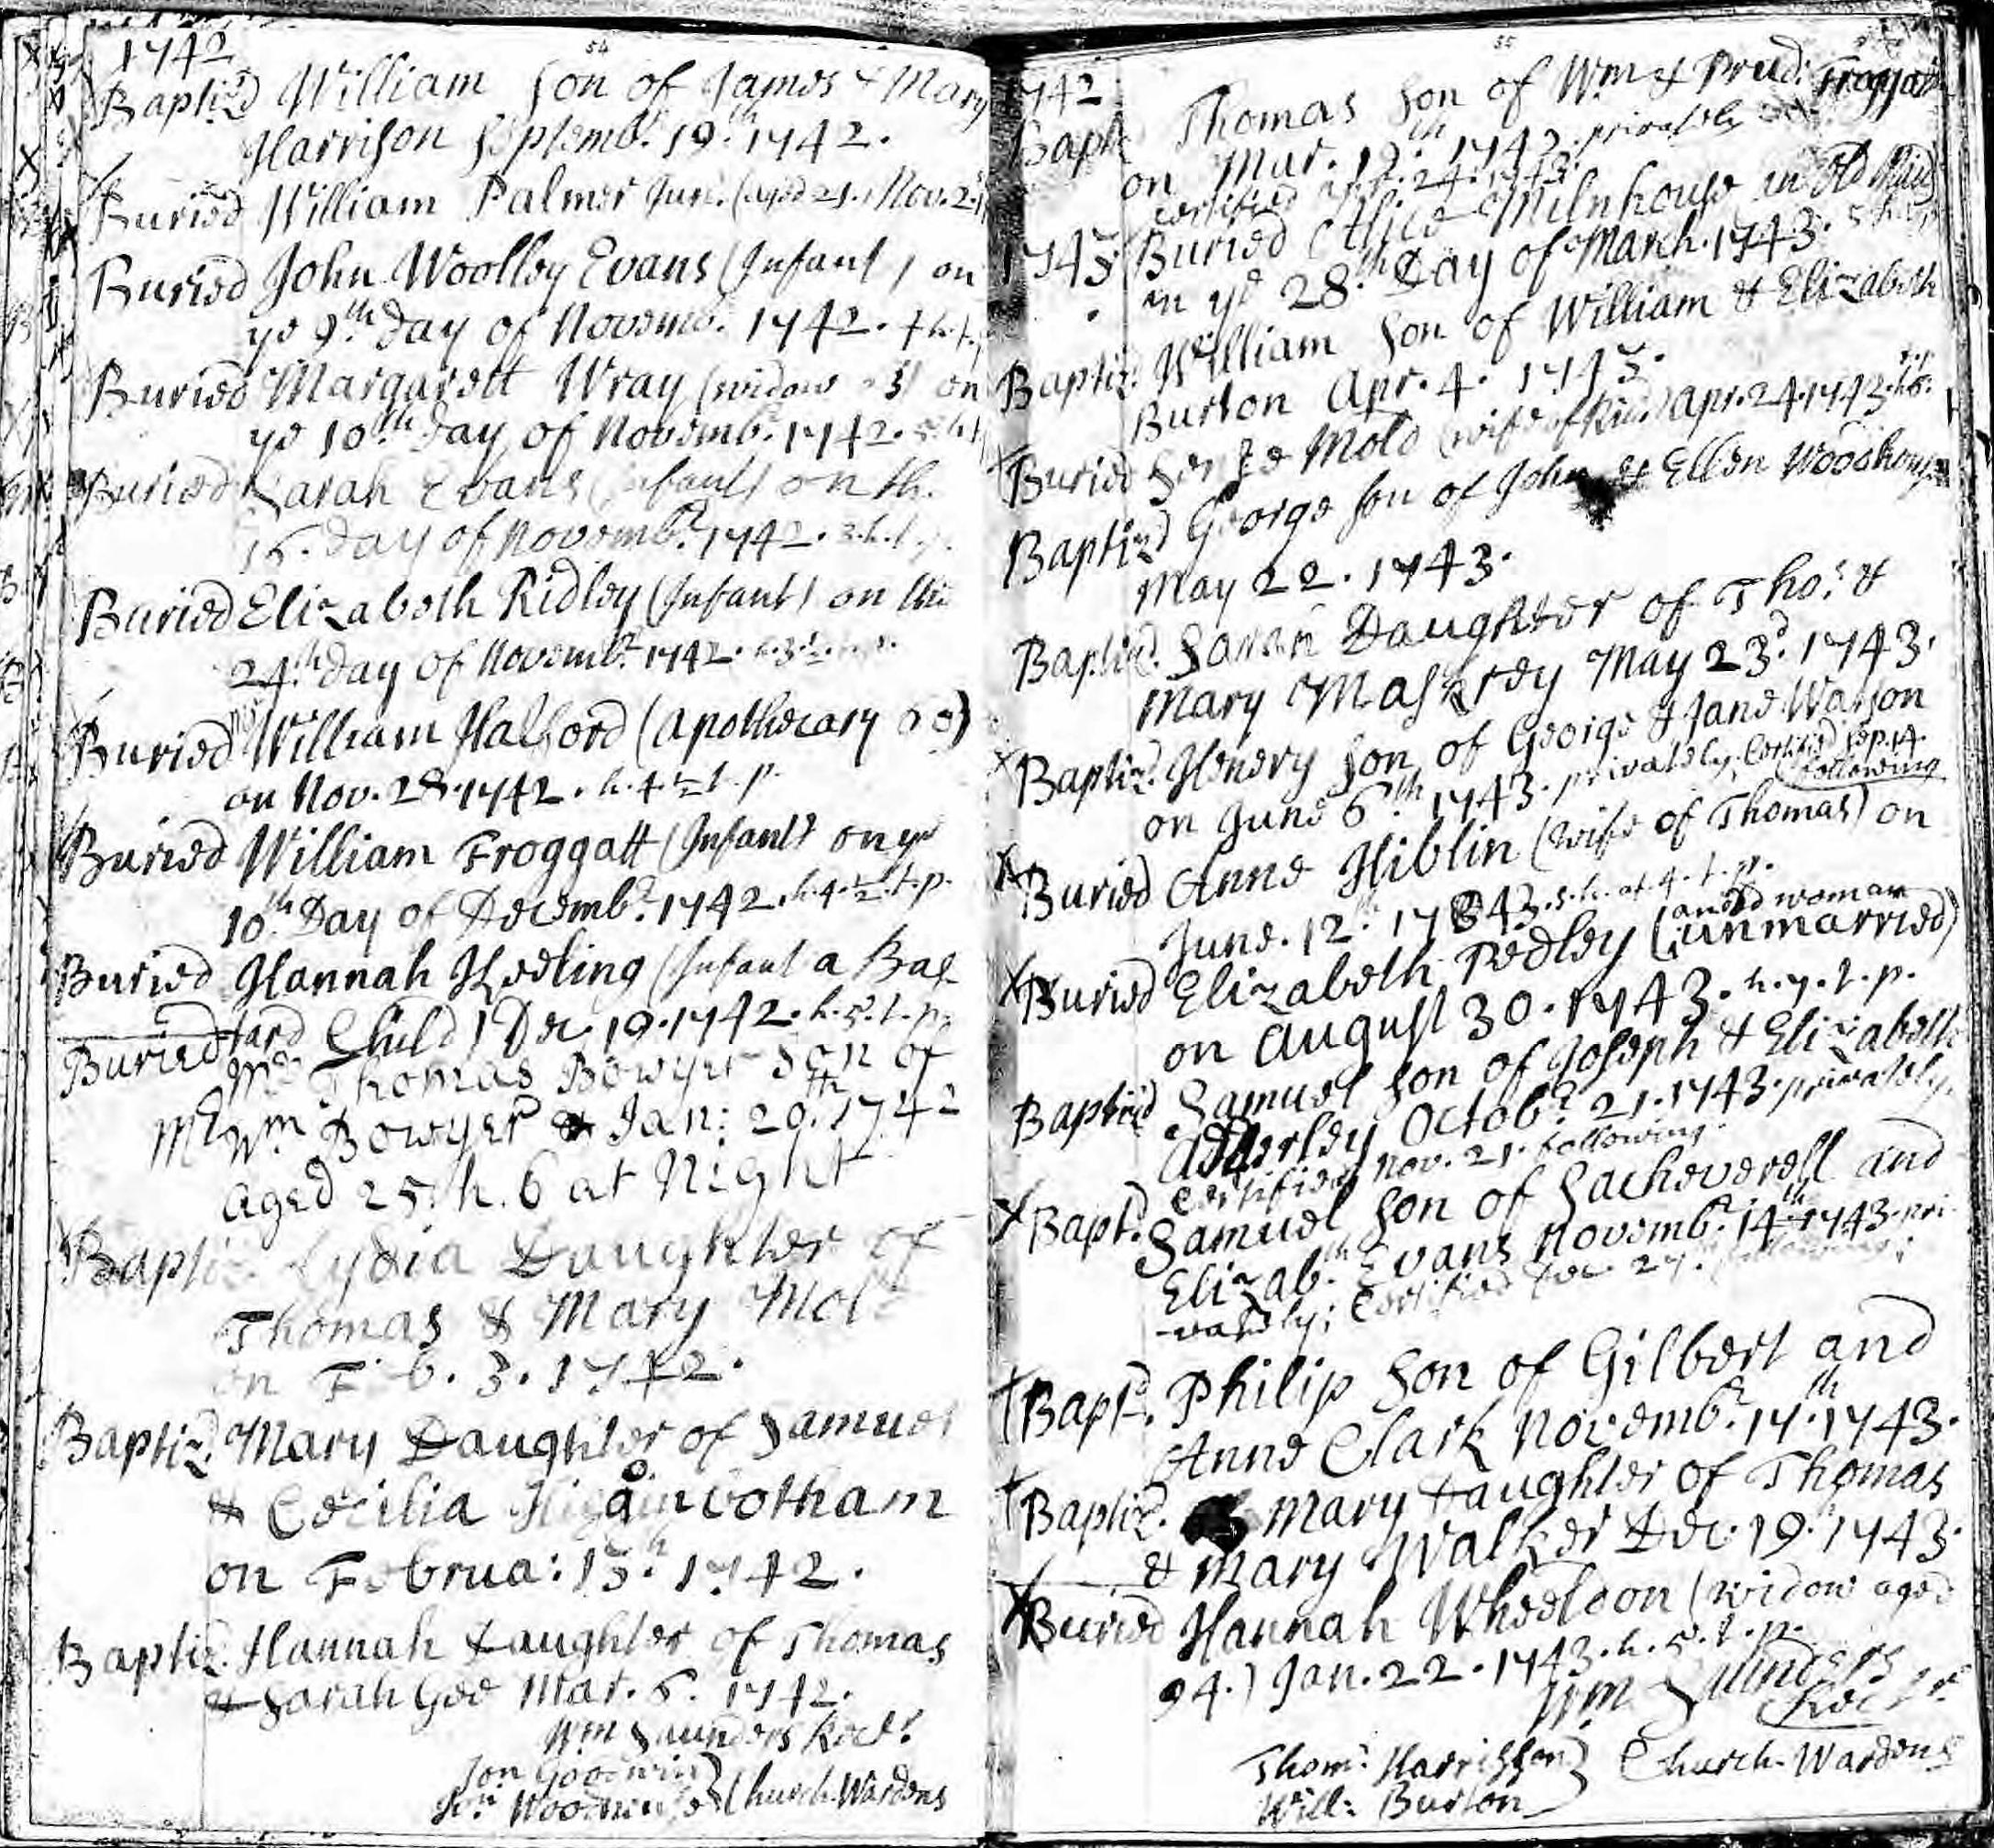 54
1742
Baptiz'd William Son of James & Mary
Harrison Septemb.r 19.th 1742.
Buried William Palmer Jun. (aged 21.) Nov. 2.
Buried John Woolley Evans (Infant) on
ye 9.th Day of Novemb.r 1742.
Buried Margarett Wray (widow) on
ye 10.th Day of Novemb.r 1742. 5.h.
Buried Sarah Evans (Infant) on th.
Day of Novemb.r 1742. 3.h.t.
Buried Elizabeth Ridley (Infant) on the
24.th Day of Novemb.r 1742. h.3.½.
Buried William Halford (Apothecary)
on Nov. 28. 1742. h.4.½ t.p.
Buried William Froggatt (Infant) on ye
10.th Day of Decemb.r 1742. h.4.½.t.p.
Buried Hannah Keeling (Infant a Bas
tard Child) Dec. 19. 1742. h.5.t.p.
Buried Mr Thomas Bowyer Son of
Mr Wm Bowyer Jan: 20.th 1742
aged 25. h. 6 at Night
Baptiz. Lydia Daughter of
Thomas & Mary Mold
on Feb. 3. 1742.
Baptiz. Mary Daughter of Samuel
& Cecilia Higginbotham
on Februa: 13.th 1742.
Baptiz. Hannah Daughter of Thomas
& Sarah Gee Mar. 6. 1742.
Wm Saunders Rectr
Jon Goodwin
Jon Woodhouse } Church-Wardens
55
1742
Bapt. Thomas Son of Wm & Prud: Froggatt
on Mar. 12.th 1742. privately
certified Apr. 24. 1743.
1743 Buried Alice Milnhouse an Old Maid
on ye 28.th Day of March. 1743. 5
Baptiz. William Son of William & Elizabeth
Burton Apr. 4. 1743.
Buried Mold (wife of Ric.) Apr. 24. 1743.
Baptiz'd George Son of John & Ellen Woodhouse
May 22. 1743.
Baptiz'd. Sarah Daughter of Tho.s &
Mary Maskrey May 23.d 1743.
Baptiz. Henery Son of George & Jane Watson
on June 6.th 1743. privately, Certified Sep. 14.
following
Buried Anne Hiblin (wife of Thomas) on
June. 12.th 1743. 5.h. at 4.t.p.
Buried Elizabeth Pedley (an old woman
unmarried)
on August 30. 1743. h.7.t.p.
Baptized Samuel Son of Joseph & Elizabeth
Adderley Octob.r 21. 1743. privately,
Certified Nov. 21. following
Bapt. Samuel Son of Sacheverell and
Elizab.th Evans Novemb.r 14.th 1743. pri
-vately; Certified Dec. 27. following;
Bapt. Philip Son of Gilbert and
Anne Clark Novemb.r 17.th 1743.
Baptiz. Mary Daughter of Thomas
& Mary Walker Dec. 19.th 1743.
Buried Hannah Wheeldon (widow aged
94.) Jan. 22. 1743. h.5.t.p.
Wm Saunders
Rectr.
Thom: Harrisson
Will: Burton } Church-Wardens